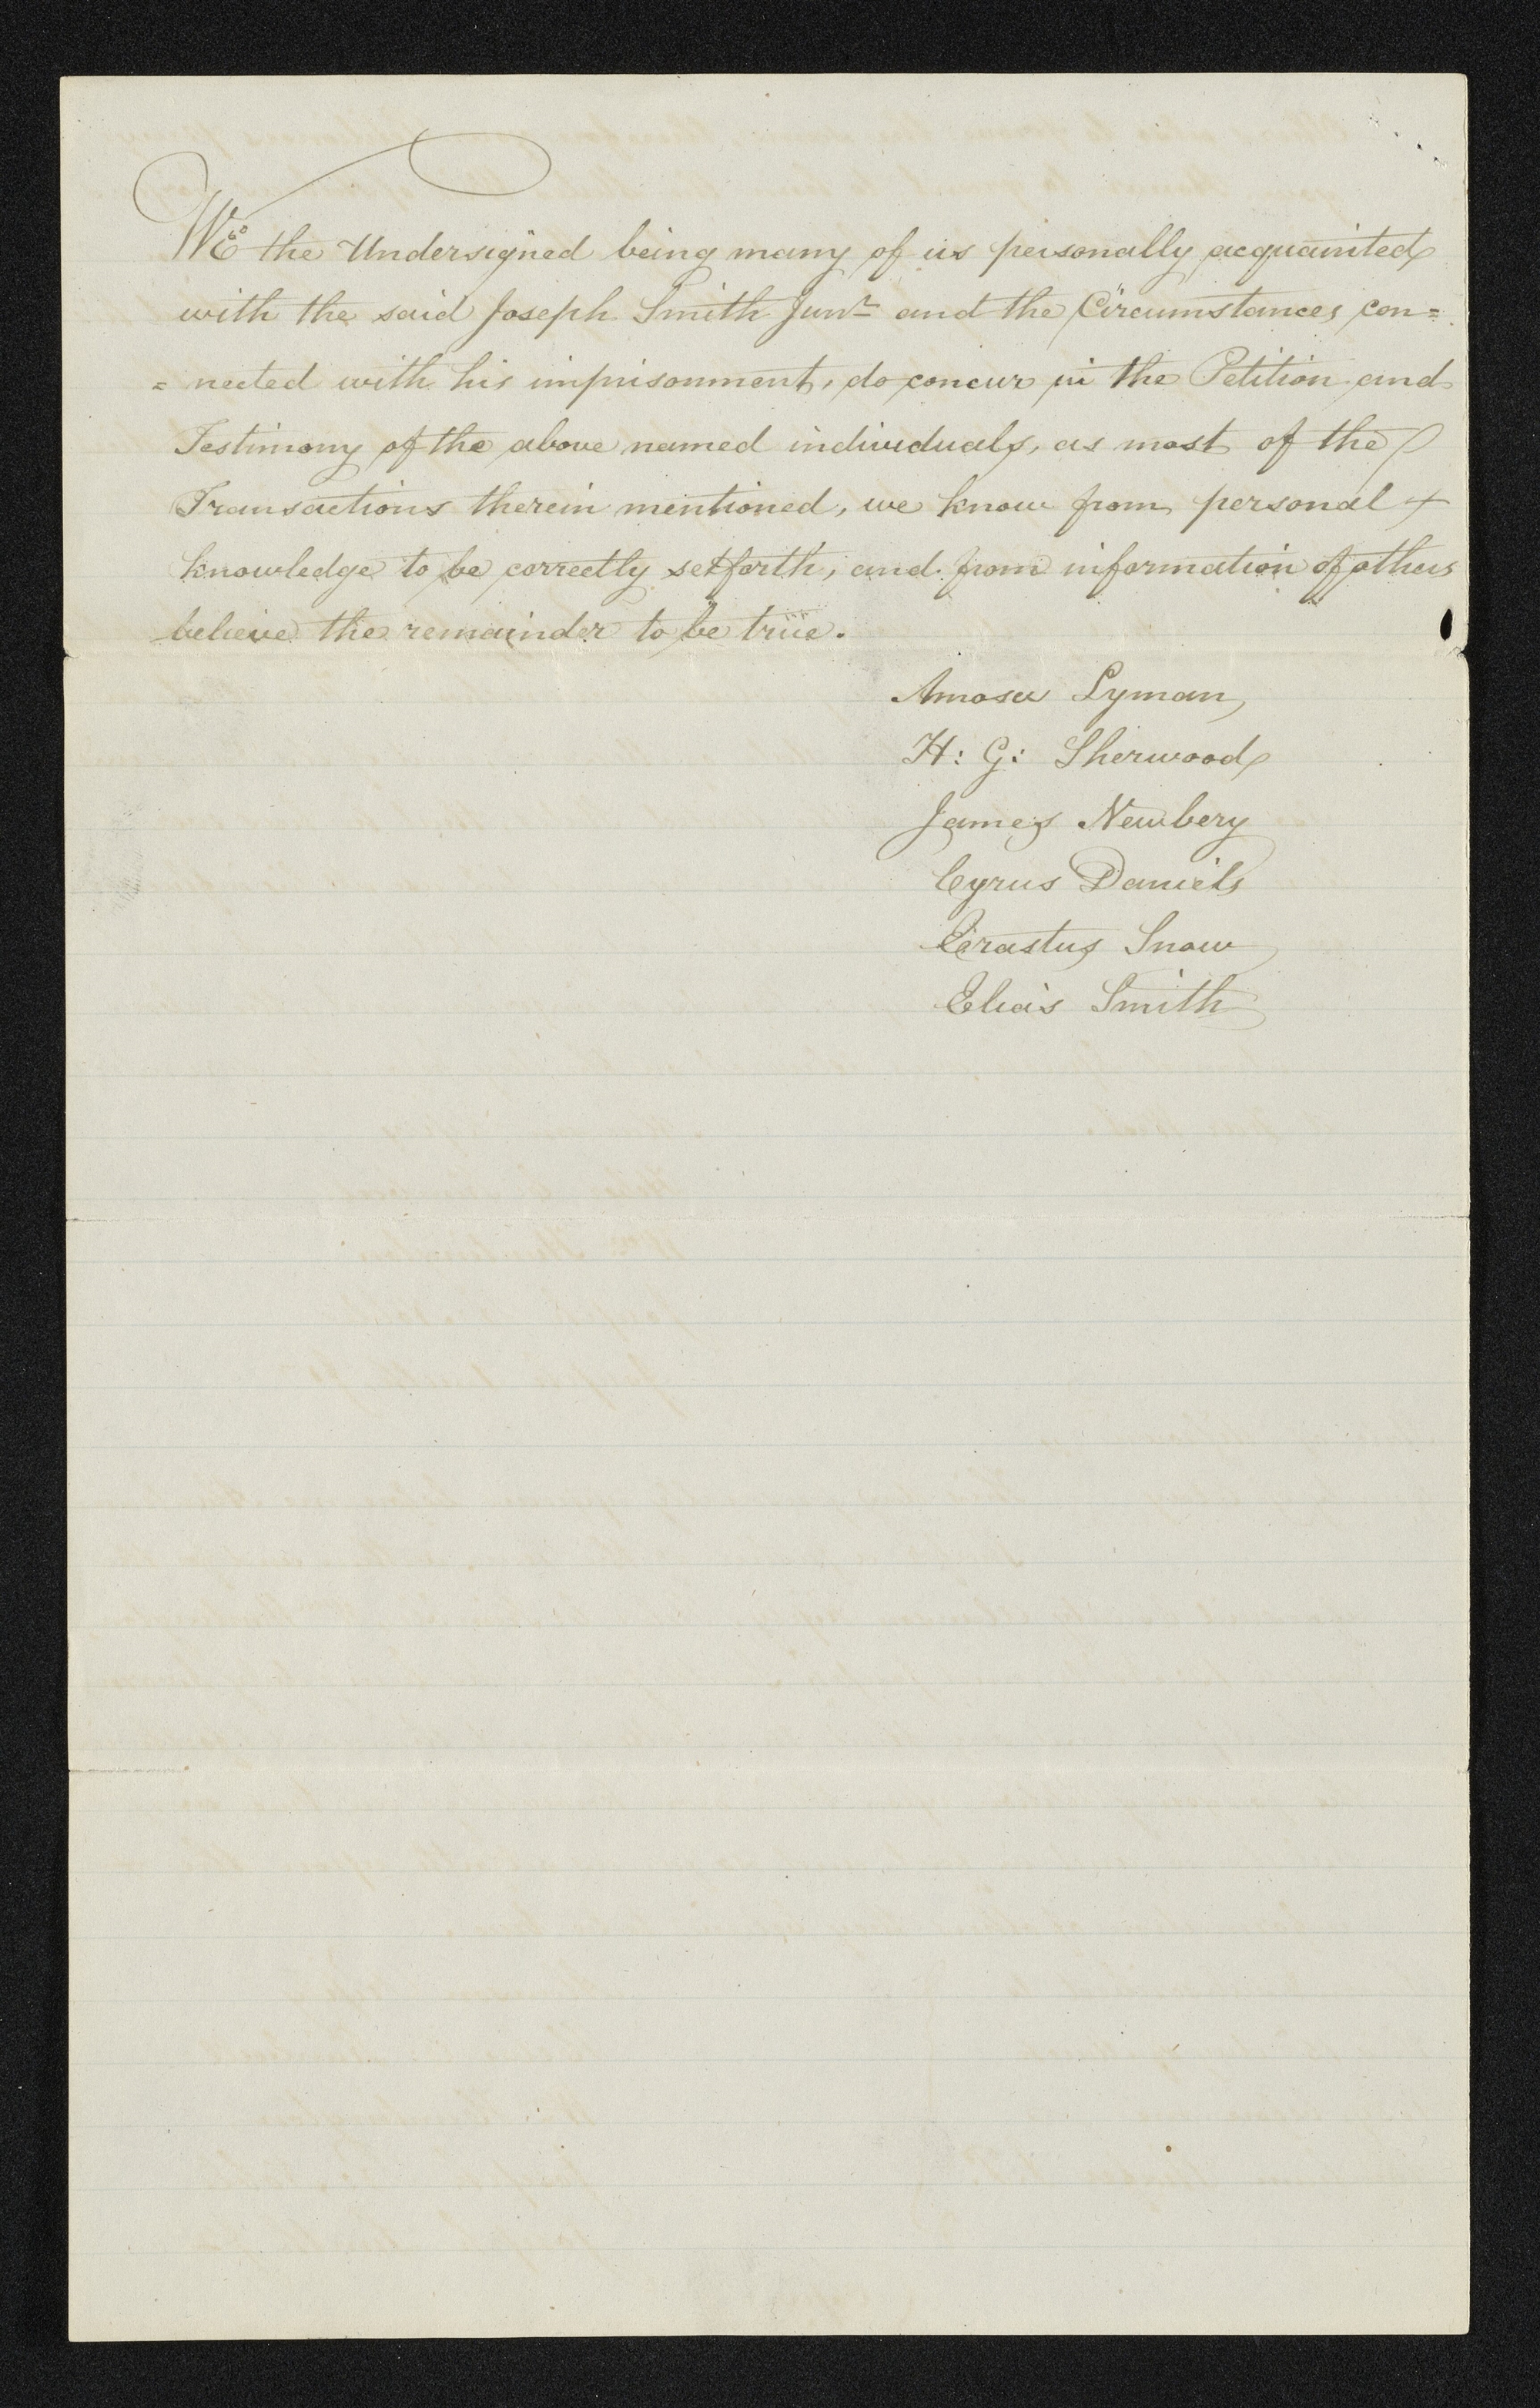 WE the Undersigned being many of us personally acquainted
with the said Joseph Smith Junr and the Circumstances con=
= nected with his imprisonment, do concur in the Petition and
Testimony of the above named individuals, as most of the
Transactions therein mentioned, we know from personal +
knowledge to be correctly setforth, and from information of others
believe the remainder to be true.
Amasa Lyman,
H: G: Sherwood
James Newbery
Cyrus Daniels
Erastus Snow
Elias Smith